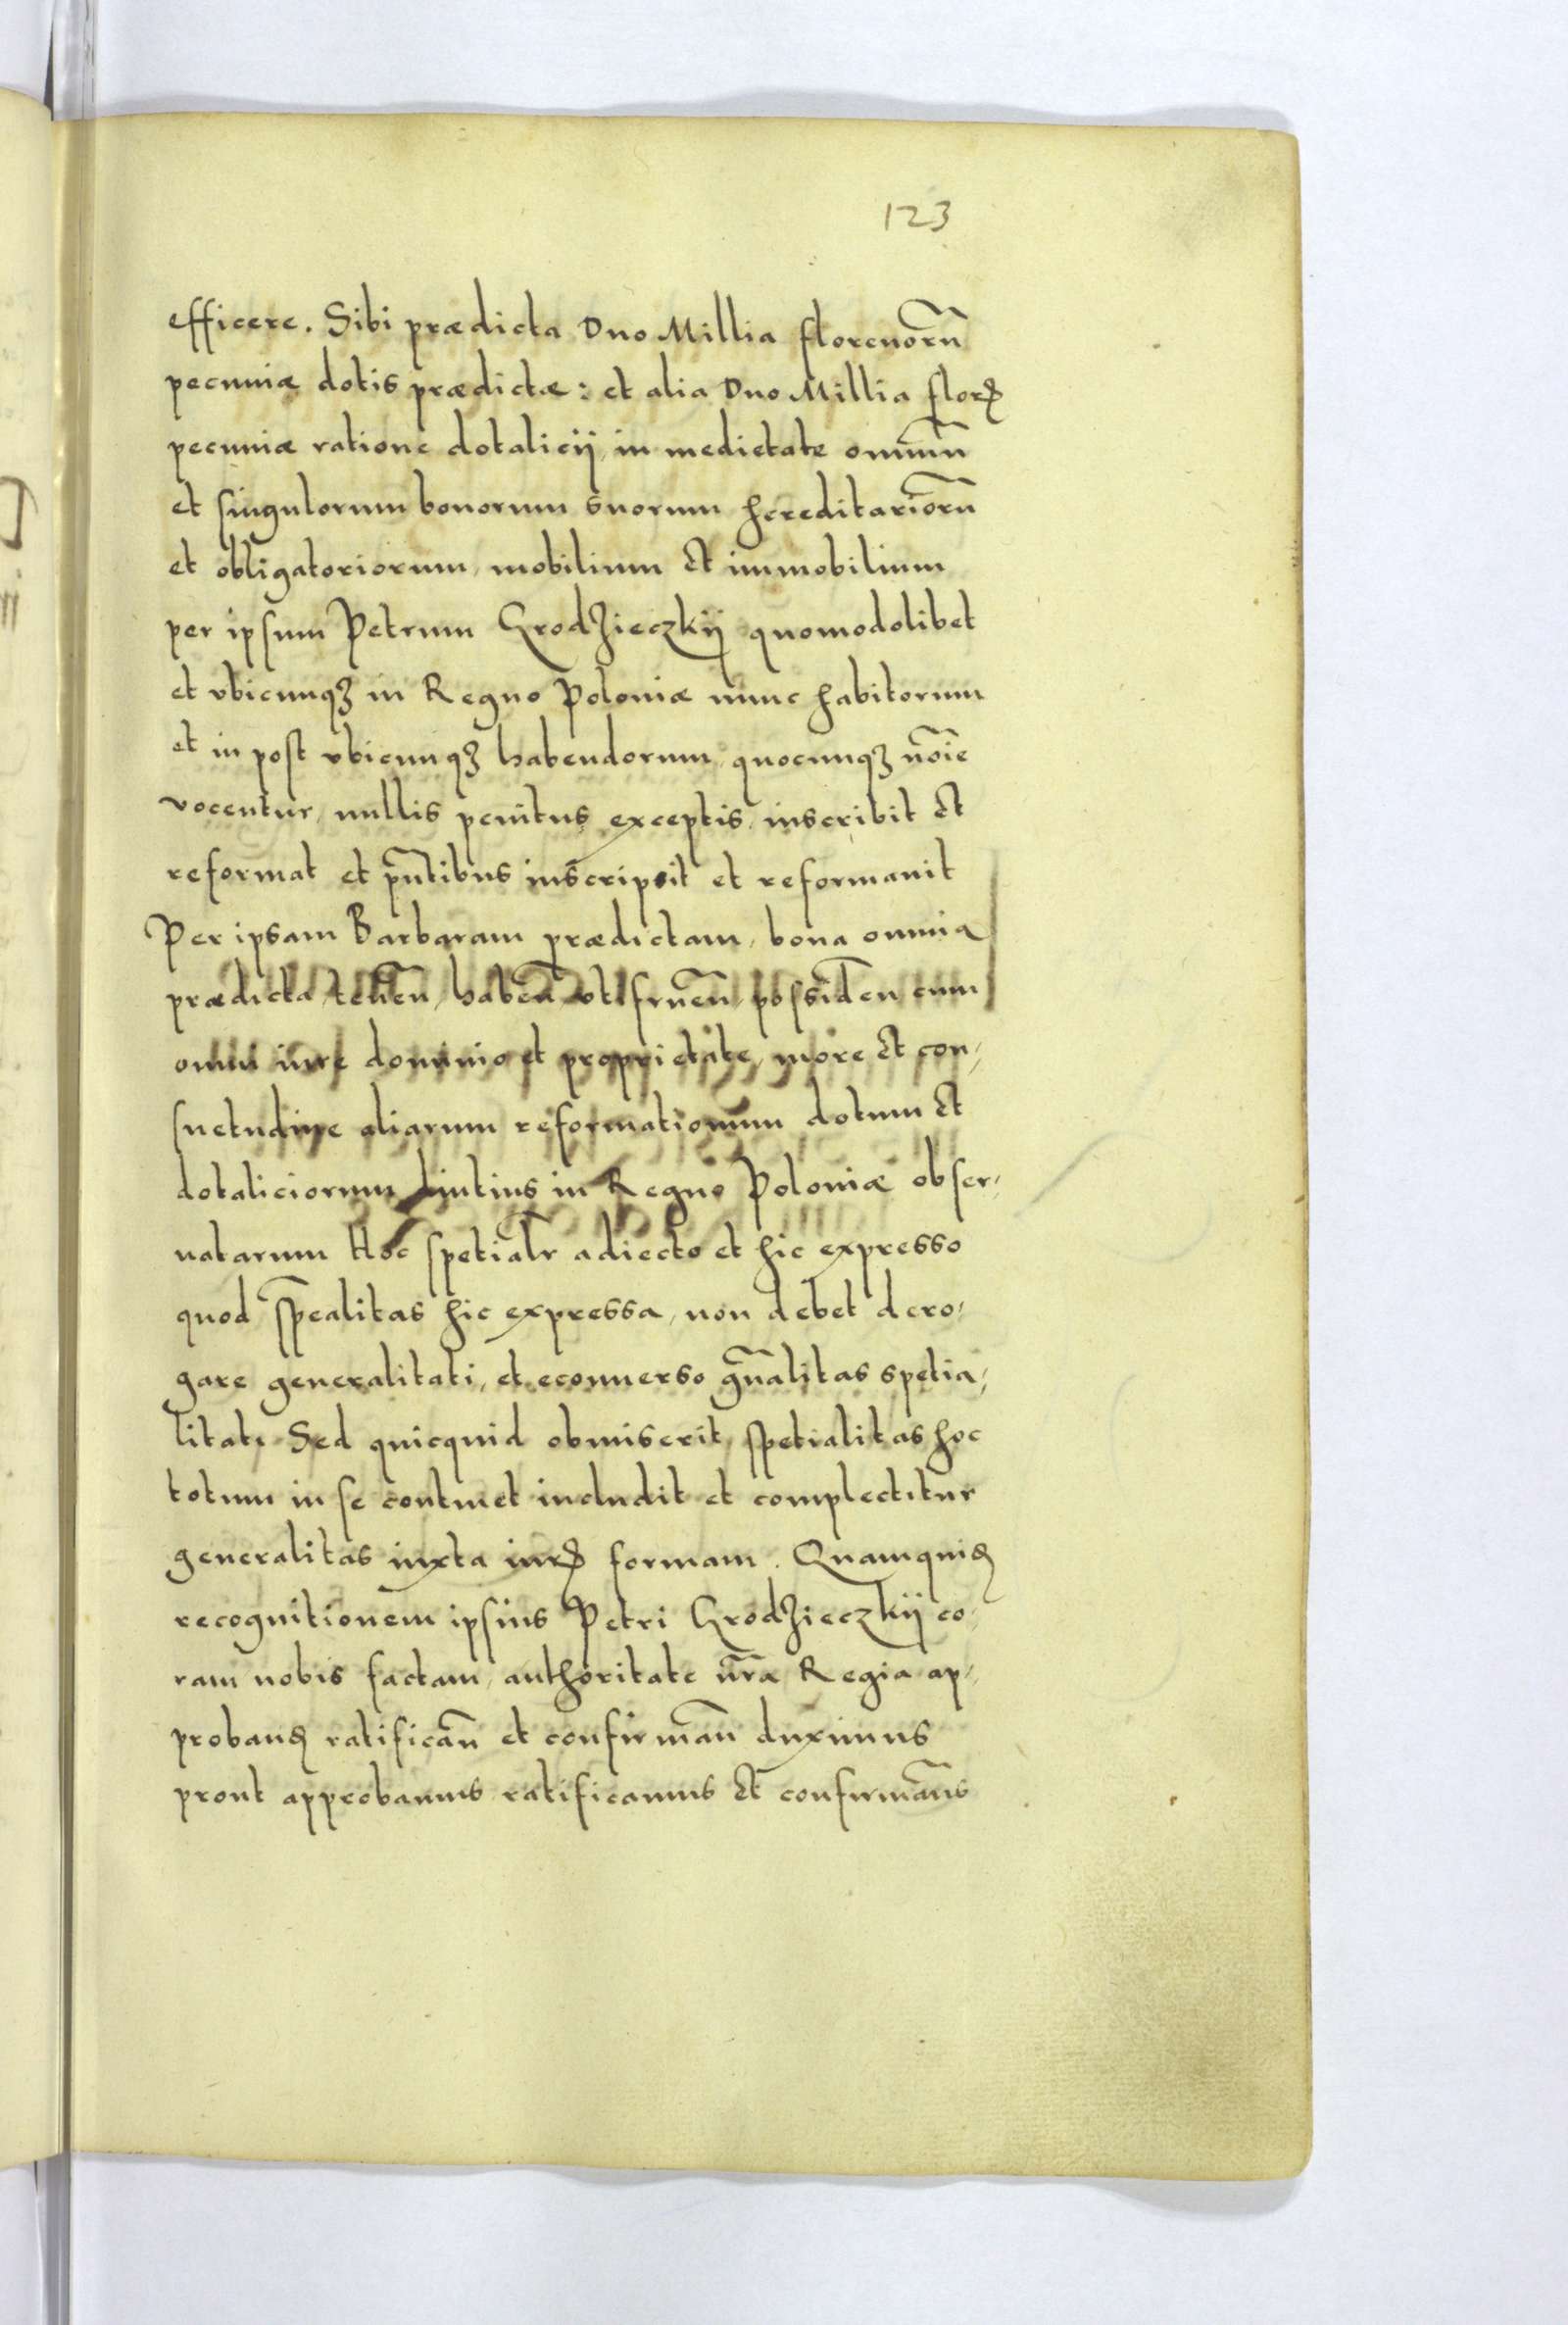 123
efficere. Sibi prædicta Duo Millia florenorũ
pecuniæ dotis prædictæ: et alia Duo Millia flor
pecuniæ ratione dotalicij, in medietate omniũ
et singulorum bonorum suorum hereditariorũ
et obligatoriorum, mobilium et immobilium
per ipsum Petrum Grodzieczkij quomodolibet
et vbicunqꝫ in Regno Poloniæ nunc habitorum
et in post vbicunqꝫ habendorum, quocunqꝫ nõie
vocentur, nullis penitus exceptis, inscribit et
reformat et pñtibus inscripsit et reformauit
Per ipsam Barbaram prædictam, bona omnia
prædicta, teneñ, habeñ vtifrueñ, possideñ cum
omni iure dominio et proprietate, more et con,
suetudine aliarum reformationum dotum et
dotaliciorum diutius in Regno Poloniæ obser,
uatarum Hoc spetialr̃ adiecto et hic expresso
quod sp̃ealitas hic expressa, non debet dero,
gare generalitati, et econuerso gñalitas spetia,
litati Sed quicquid obmiserit spetialitas hoc
totum in se continet includit et complectitur
generalitas iuxta iur formam. Quamquid
recognitionem ipsius Petri Grodzieczkij co,
ram nobis factam, authoritate nr̃a Regia ap,
proband ratificañ et confirmañ duximus
prout approbamus ratificamus et confirmam̃s